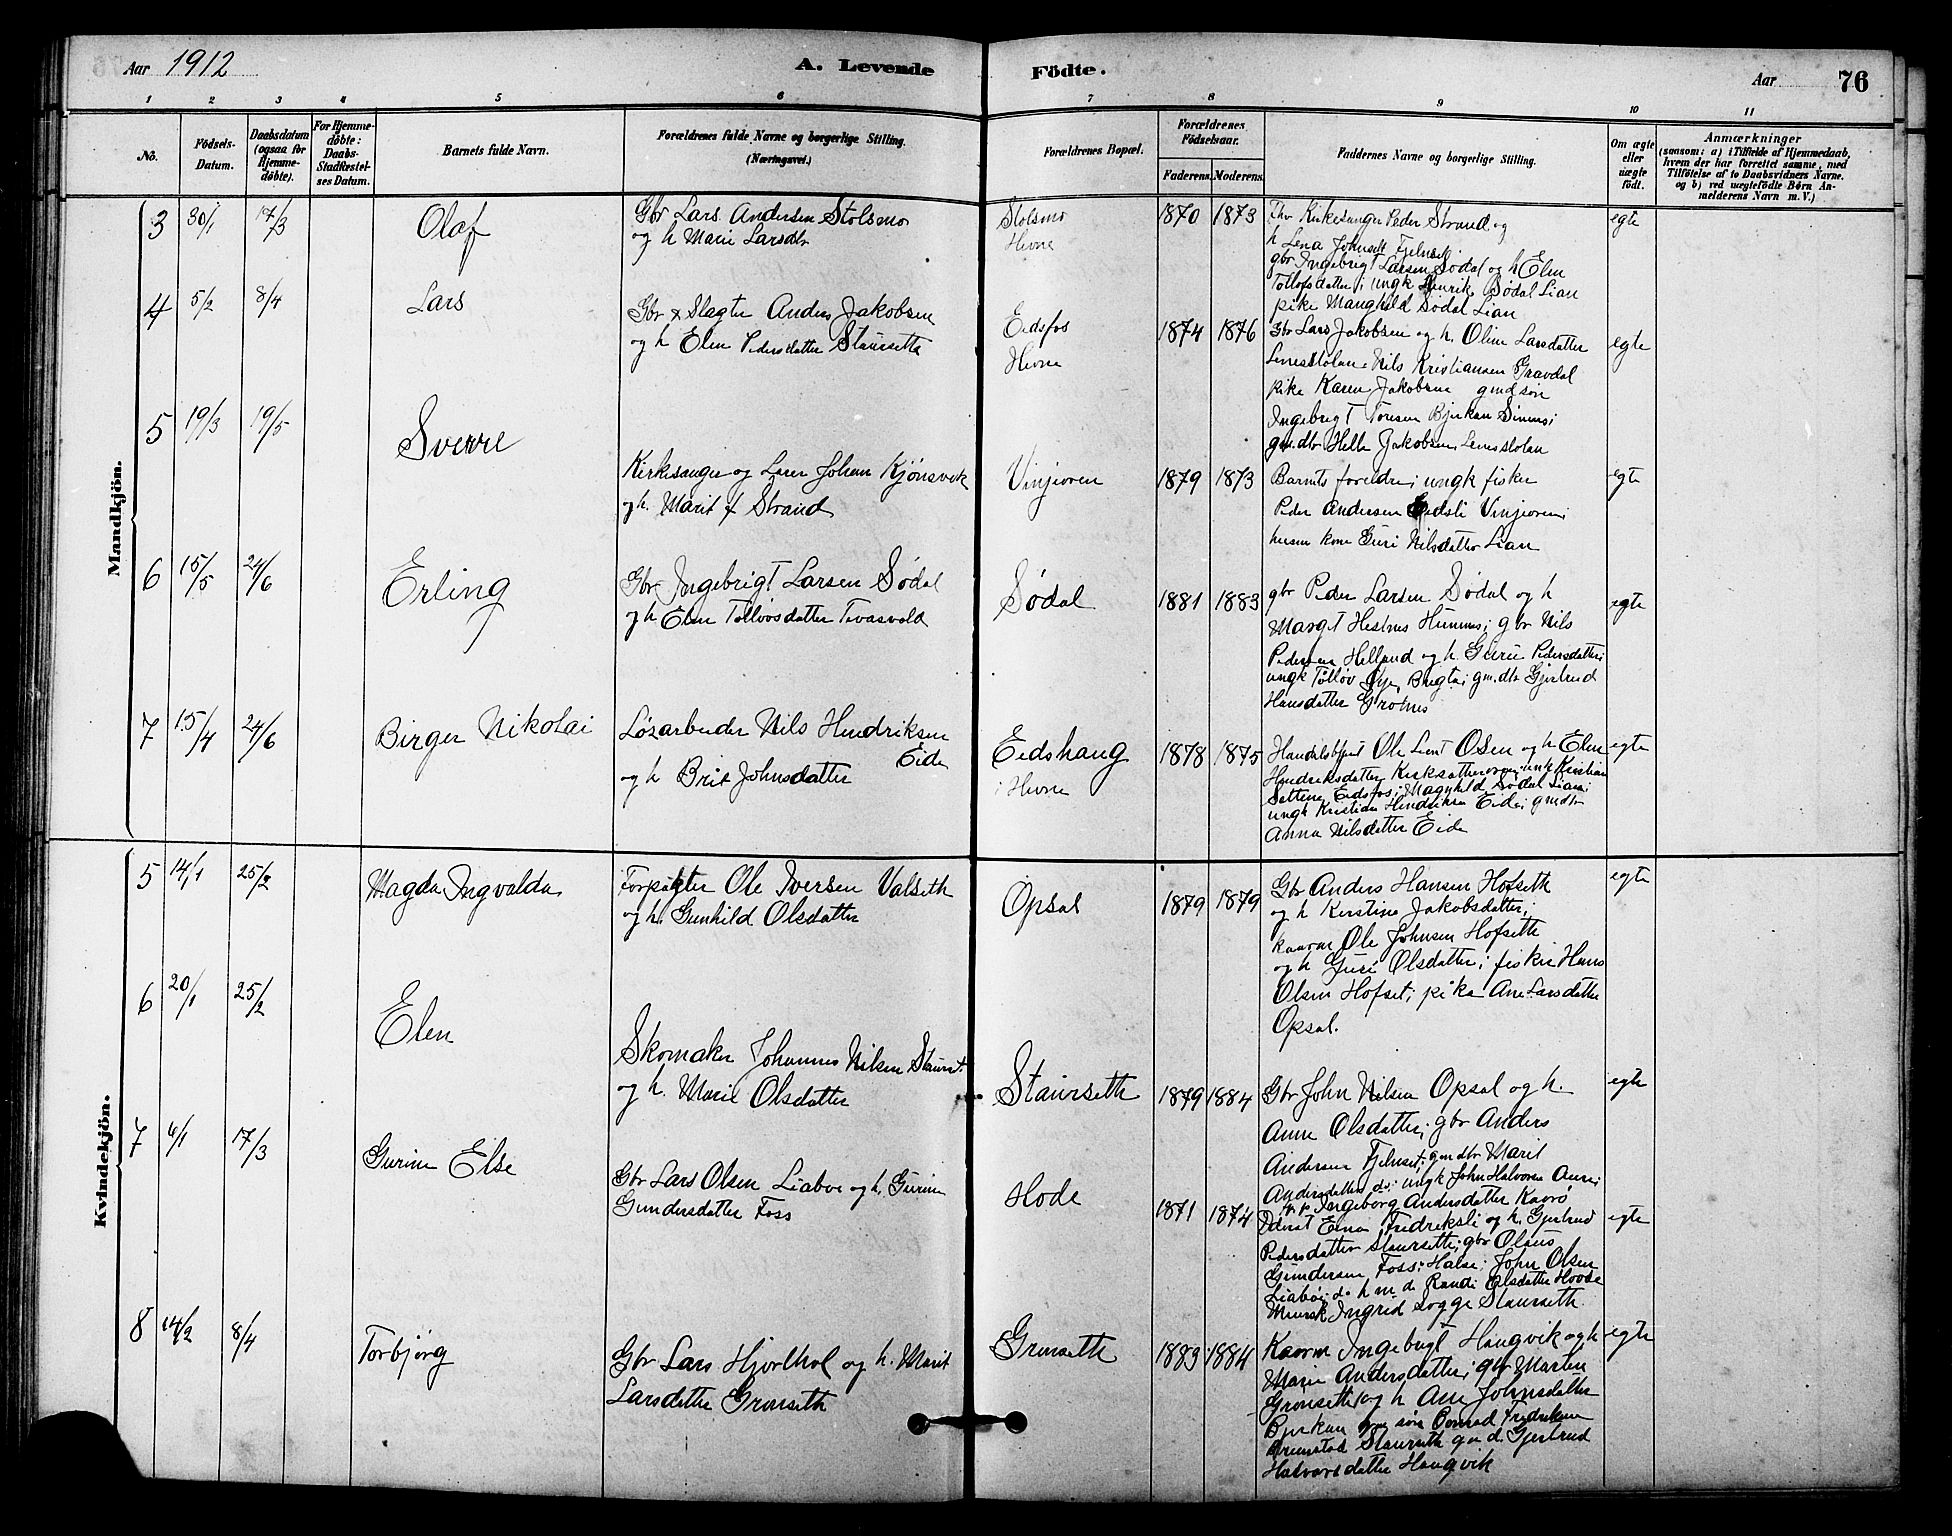 Aar 1912
A. Levende
Födte.
Aar
76
1 2 3 4 5 6 7 8 9 10 11
No.
Födsels-
Datum.
Daabsdatum
(ogsaa for
Hjemme-
döbte).
For Hjemme-
döbte:
Daabs-
Stadfæstel-
ses Datum.
Barnets fulde Navn.
Forældrenes fulde Navne og borgerlige Stilling.
(Næringsvei.)
Forældrenes Bopæl.
Forældrenes
Födselsaar.
Faderens. Moderens.
Faddernes Navne og borgerlige Stilling.
Om ægte
eller
uægte
födt.
Anmærkninger
(saasom: a) i Tilfælde af Hjemmedaab,
hvem der har forrettet samme, med
Tilföielse af to Daabsvidners Navne,
og b) ved uægtefödte Börn An-
melderens Navn m. V.)
Mandkjön.
3 30/1 17/3 Olaf
Gbr Lars Andersen Stolsmo
og h Marie Larsdtr
Stolsmo
Hevne
1870 1873
Kirkesanger Peder Strand og
h Lena Johnsdt Fjelnset
gbr Ingebrigt Larsen Sødal og h Elen
Tollofsdatter; ungk Henrik Sødal Lian
pike Manghild Sødal Lian
egte
4 5/2 8/4 Lars
Gbr & Slagter Anders Jakobsen
og h Elen Pedersdatter Staursetta
Eidsfos
Hevne
1874 1876
Gbr Lars Jakobsen og h. Oline Larsdatter
Lenesstolan Nils Kristiansen Gravdal
pike Karen Jakobsen gmdsøn
Ingebrigt Toresen Bjerkan
gm.dtr Helle Jakobsen Lenesstolan
egte
5 19/3 19/5 Sverre
Kirkesanger og Lærer Johan Kjønsvik
og h. Marit f Strand
Vinjeøren
1879 1873
Barnets foreldre; ungk fisker
Peder Andersen Eidsli Vinjeøren;
husm kone Guri Nilsdatter Lian
egte
6 15/5 24/6 Erling
Gbr Ingebrigt Larsen Sødal
og h Elen Tollivsdatter Tvasvold
Sødal
1881 1883
gbr Peder Larsen Sødal og h
Marget Hestnes Hummes; gbr Nils
Pedersen Helland og h. Guru Pedersdatter;
ungk Tolløv Øye, gm.dtr Gjertrud
Hansdatter Grotnes
egte
7 15/4 24/6 Birger Nikolai
Løsarbeider Nils Hendriksen
Eide
og h Brit Johnsdatter
Eidshaug
i Hevne
1878 1875
Handelsbetjent Ole Lent Osen og h Elen
Hendriksdatter Kirksæterøren; ungk Kristian
Settem Eidsfos; Magnhild Sødal Lian;
ungk Kristian Hendriksen Eide; gmdtr
Anna Nilsdatter Eide
egte
Kvindekjön.
5 14/1 25/2 Magda Ingvalda
Forpagter Ole Iversen Valseth
og h. Gunhild Olsdatter
Opsal
1879 1879
Gbr Anders Hansen Hofseth
og h Kerstine Jakobsdatter;
kaarm Ole Johnsen Hofseth
og h Guri Olsdatter; fisker Hans
Olsen Hofset; pike Ane Larsdatter
Opsal.
egte
6 20/1 25/2 Elen
Skomaker Johannes Nilsen Staurset
og h. Marie Olsdatter
Staurseth
1879 1884
Gbr John Nilsen Opsal og h.
Anne Olsdatter; gbr Anders
Andersen Fjelnset; gmdtr Marit
Andersdatter do; ungk John Halvorsen Aure;
Ingeborg Andersdatter Kaarø
egte
7 6/1 17/3 Gurine Else
Gbr Lars Olsen Liabø og h. Gurine
Gundersdatter Foss
Hode
1871 1874
Fredriksli og h. Gjertrud
Pedersdatter Staurseth; gbr Olaus
Gundersen Foss; Halse; John Olsen
Liabø; do h m do Randi Olsdatter Hoode
Ingrid Sogge Staurseth.
egte
8 14/2 8/4 Torbjørg
Gbr Lars Hjorthol og h. Marit
Larsdatter Gronseth
Gronseth
1883 1884
Kaarm Ingebrigt Haugvik og h
Marie Andersdatter; gbr Martin
Gronseth og h Ane Johnsdatter
Bjerkan søn Conrad Fredriksen
Staurseth gm d. Gjertrud
Halvorsdatter Haugvik
egte